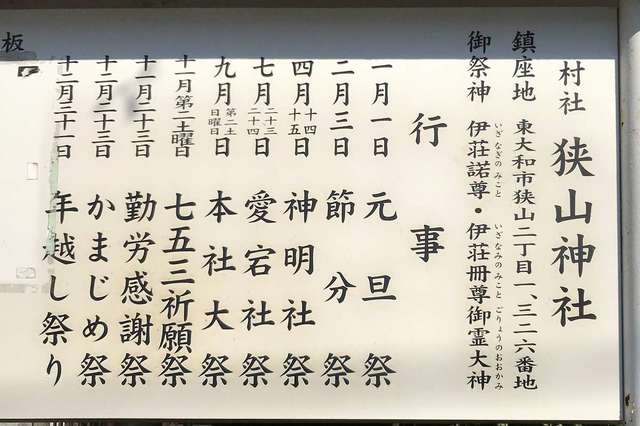 村社 狭山神社
鎮座地 東大和市狭山二丁目一、三二六番地
御祭神 伊荘諾尊・伊荘冊尊御霊大神
いざなぎのみこと いざなみのみこと ごりょうのおおかみ
行事
一月一日 元旦祭
二月三日 節分祭
四月十四十五日 神明社祭
七月二十三二十四日 愛宕社祭
九月第二土日曜日 本社大祭
十一月第二土曜日 七五三祈願祭
十一月二十三日 勤労感謝祭
十二月二十三日 かまじめ祭
十二月三十一日 年越し祭り
板